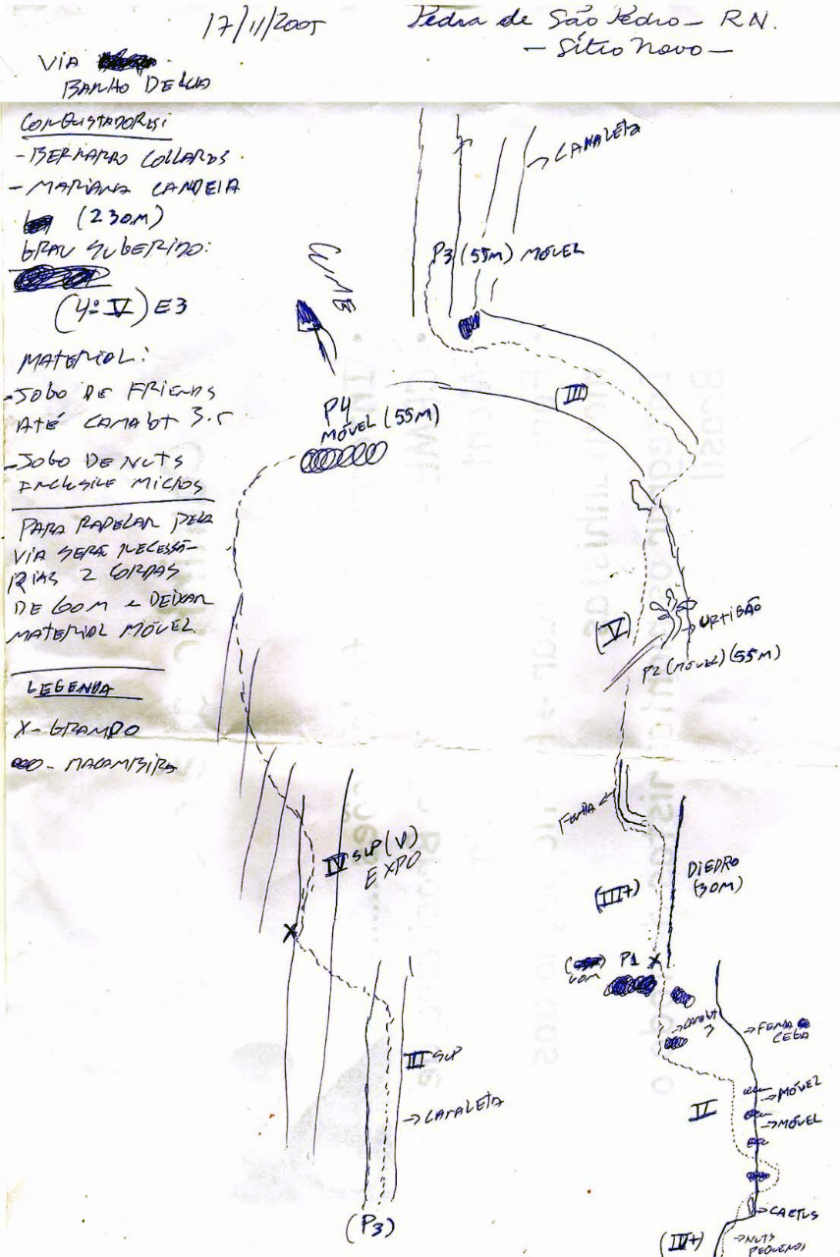 17/11/2005
Pedra de São Pedro - RN.
- Sítio Novo -
VIA
BANHO DE LUA
CONQUISTADORES:
- BERNARDO COLLARES
- MARIANA CANDEIA
(230M)
GRAU SUGERIDO:
(4º V) E3
MATERIAL:
- JOGO DE FRIENDS
ATÉ CAMALOT 3.5
- JOGO DE NUTS
INCLUSIVE MICROS
PARA RAPELAR PELA
VIA SERÁ NECESSÁ-
RIAS 2 CORDAS
DE 60M e DEIXAR
MATERIAL MÓVEL
LEGENDA
X- GRAMPO
ooo - MACAMBIRA
→ CANALETA
P3 (55M) MÓVEL
CUME
(III)
P4
MÓVEL (55M)
(V)
→ URTIGÃO
P2 (MÓVEL) (55M)
FENDA
IV SUP (V)
EXPO
DIEDRO
(30M)
(III+)
P1 X
X
→ FENDA
CEGA
III SUP
→ CANALETA
→ MÓVEL
→ MÓVEL
→ CACTUS
(P3)
(IV+)
→ NUTS
PEQUENOS